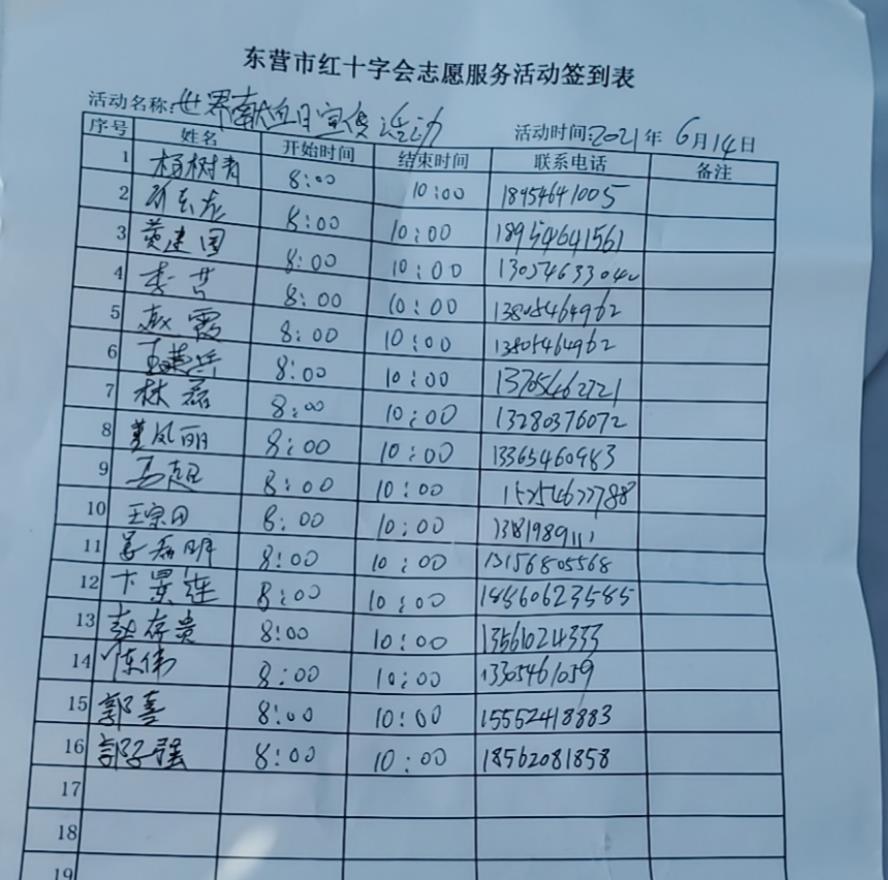 东营市红十字会志愿服务活动签到表
活动名称:世界献血日宣传活动 活动时间:2021年6月14日
序号 姓名 开始时间 结束时间 联系电话 备注
1 杨树青 8:00 10:00 18954641005
2 8:00 10:00 18954641561
3 黄建国 8:00 10:00 13054633040
4 李营 8:00 10:00 13805464962
5 赵霞 8:00 10:00 13805464962
6 王建兵 8:00 10:00 13705462721
7 林磊 8:00 10:00 13280376072
8 姜凤丽 8:00 10:00 13365460983
9 马超 8:00 10:00 15254627788
10 王宗田 8:00 10:00
11 8:00 10:00 13156805568
12 卞景连 8:00 10:00 18560623585
13 赵存贵 8:00 10:00 13561024333
14 陈伟 8:00 10:00 13305461059
15 郭喜 8:00 10:00 15552418883
16 郭子强 8:00 10:00 18562081858
17
18
19